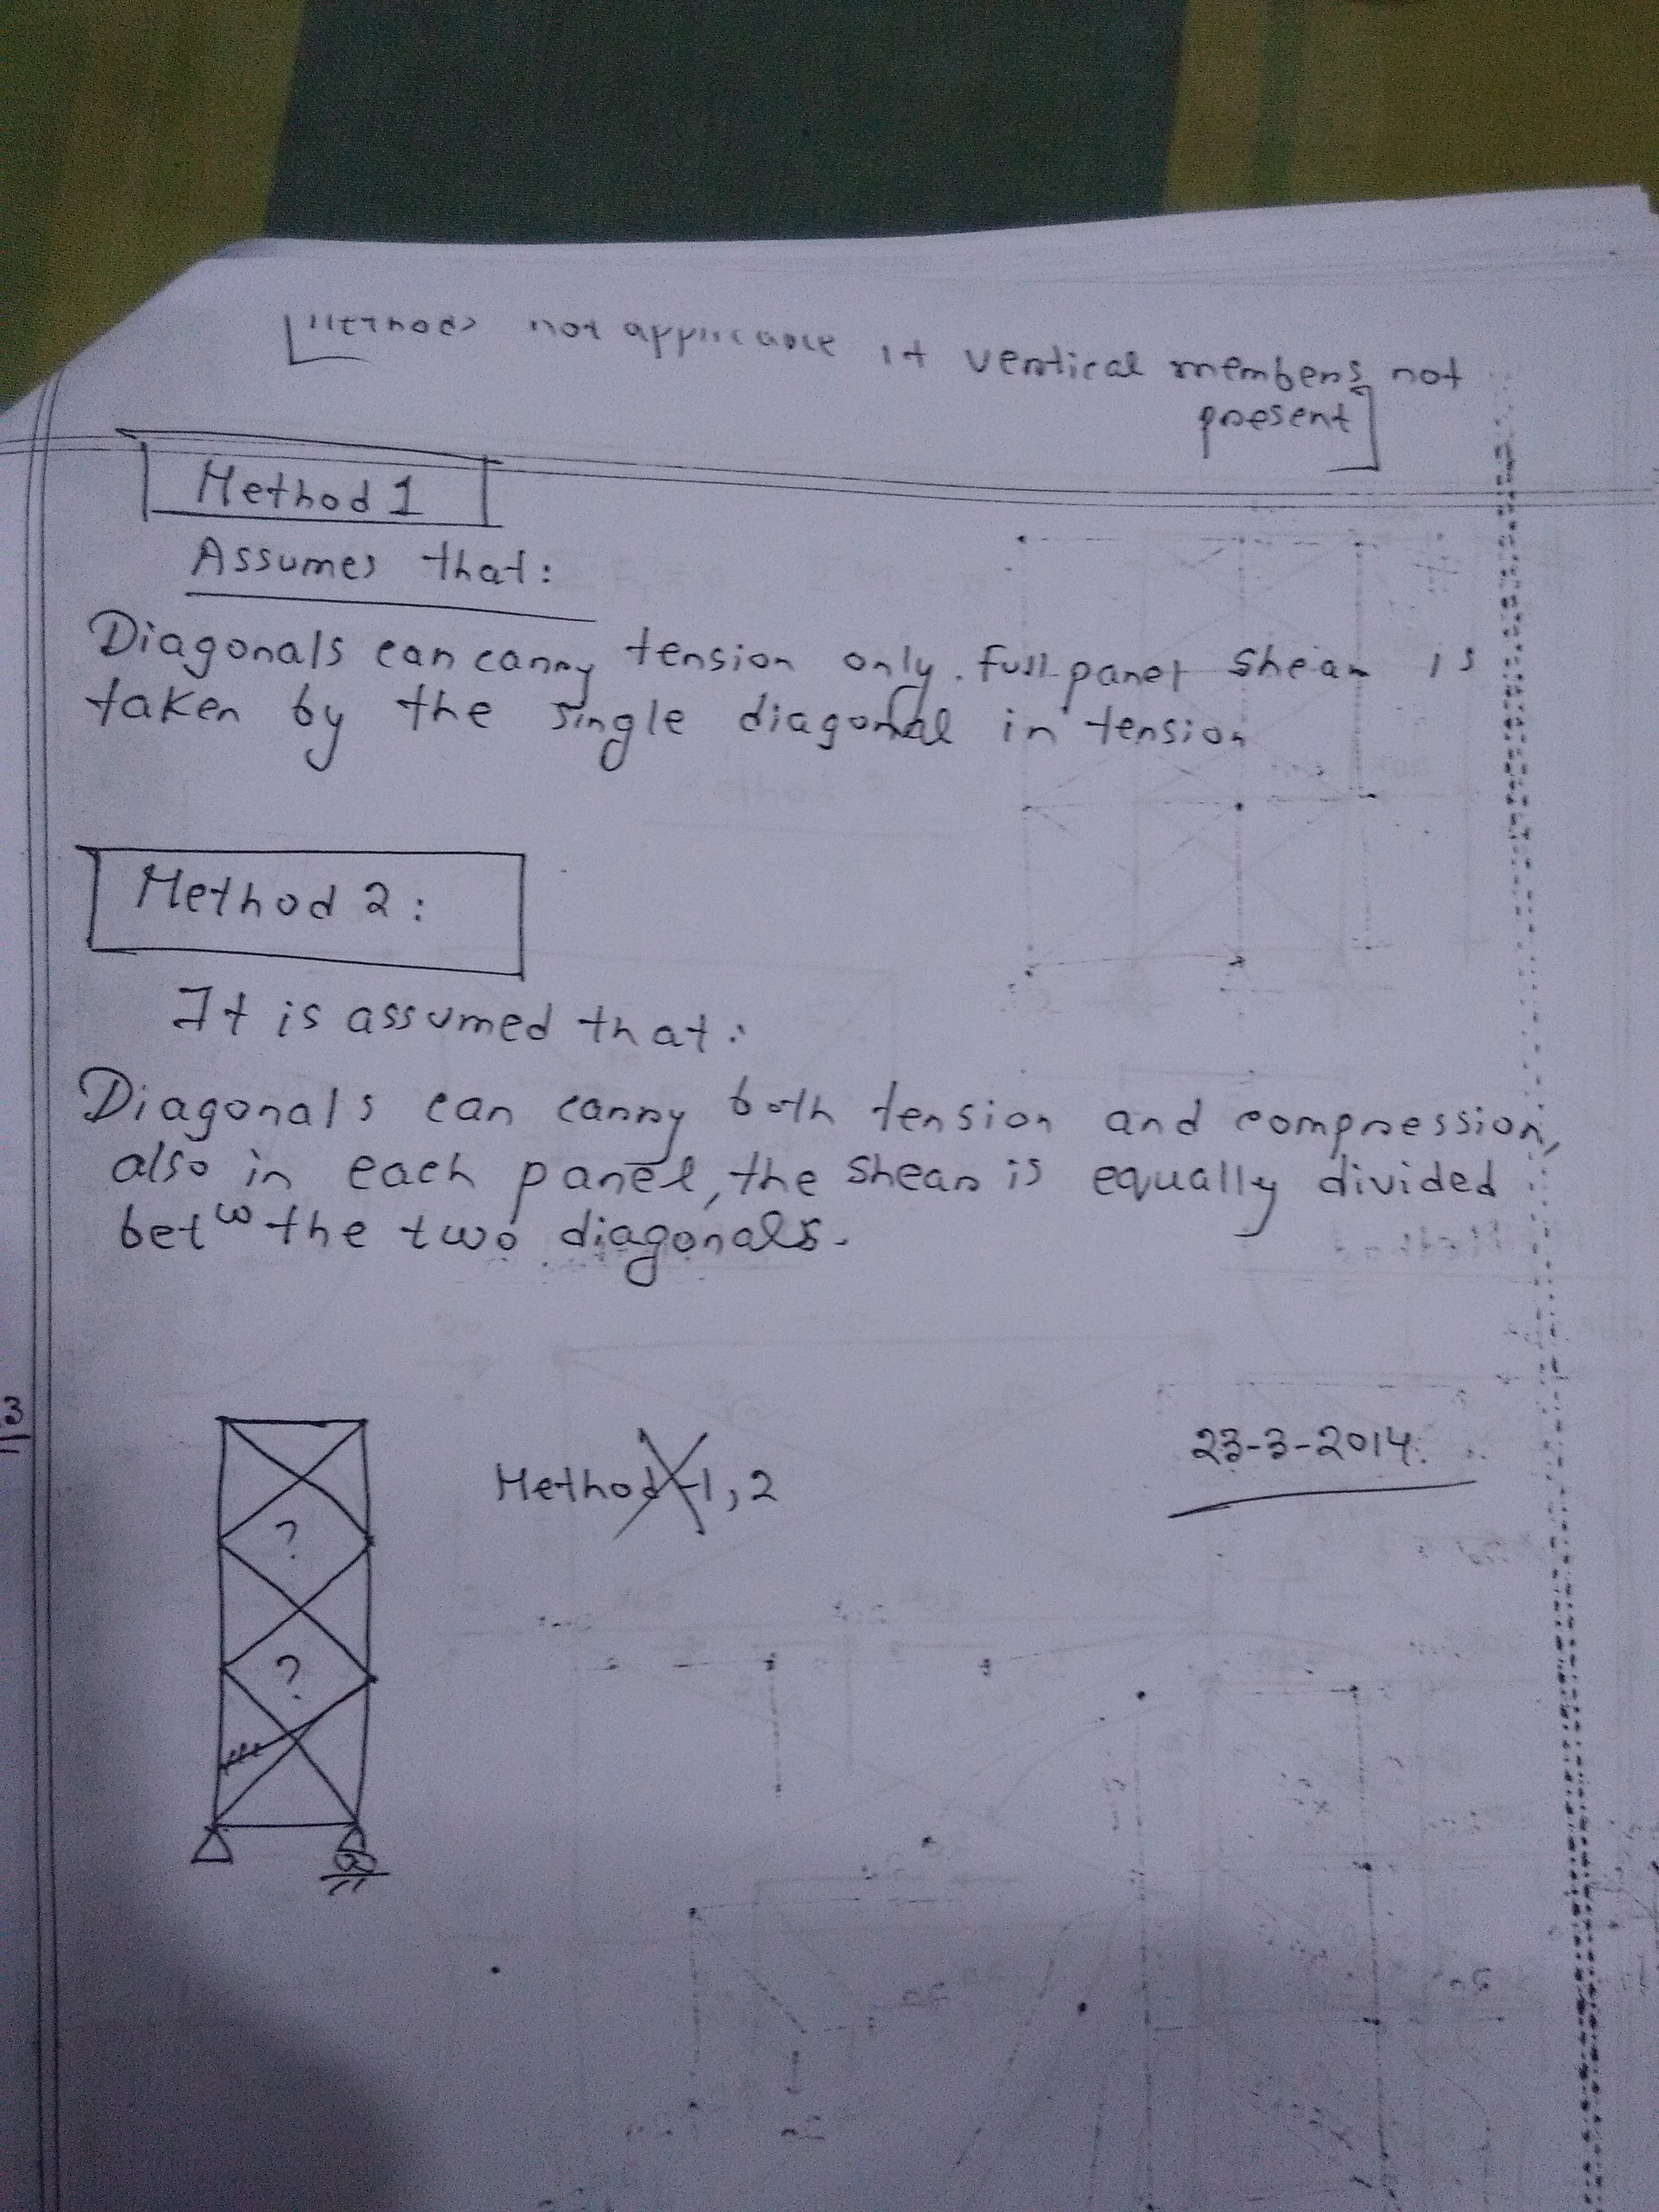 [Methods not applicable if vertical members not
present]
Method 1
Assumes that:
Diagonals can carry tension only. Full panel shear is
taken by the single diagonal in tension
Method 2:
It is assumed that:
Diagonals can carry both tension and compression,
also in each panel, the shear is equally divided
betw the two diagonals.
Method-1,2
23-3-2014
?
?